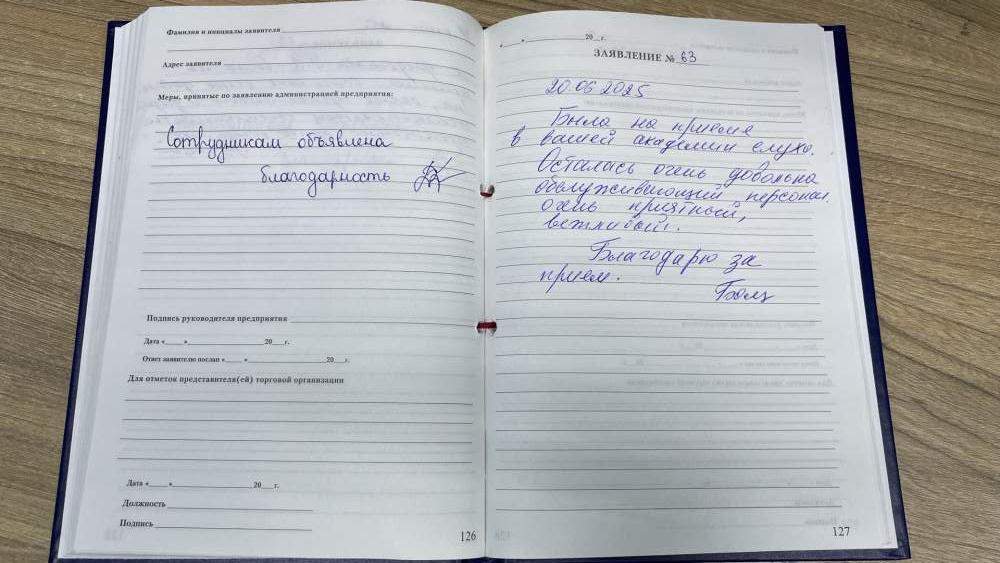 Фамилия и инициалы заявителя
Адрес заявителя
Меры, принятые по заявлению администрацией предприятия:
Сотрудникам объявлена
благодарность
Подпись руководителя предприятия
Дата «___» ___ 20__г.
Ответ заявителю послан «___» ___ 20__г.
Для отметок представителя(ей) торговой организации
Дата «___» ___ 20__г.
Должность
Подпись
126
«___» ___ 20__г.
ЗАЯВЛЕНИЕ № 63
20.06.2025
Была на приеме
в вашей академии слуха.
Осталась очень довольна
обслуживающий персонал
очень приятный,
вежливый.
Благодарю за
прием.
127